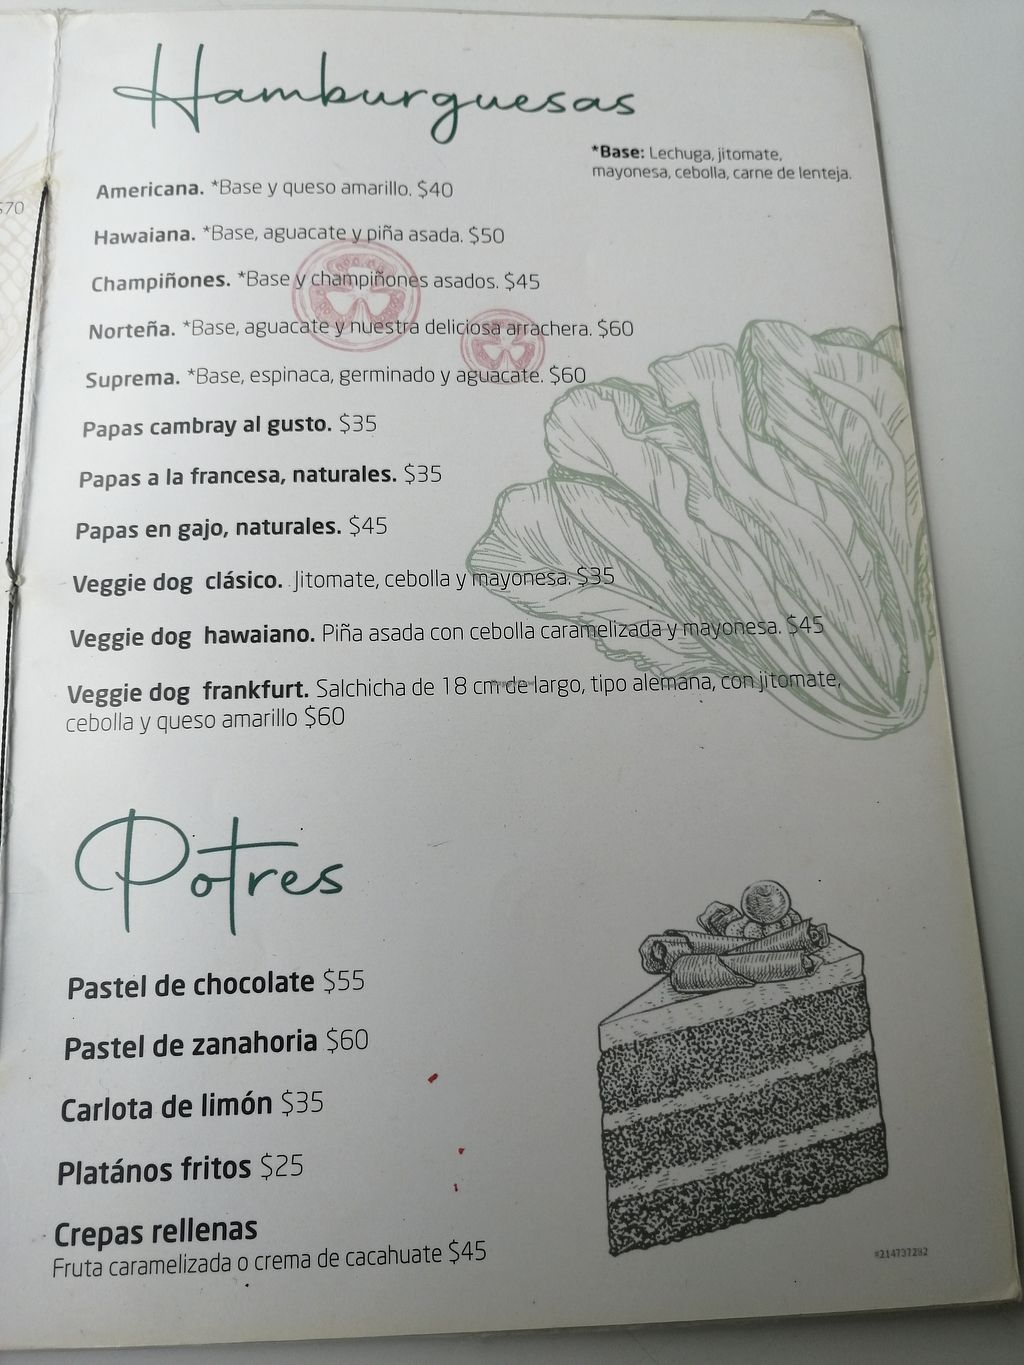 Hamburguesas
*Base: Lechuga, jitomate,
mayonesa, cebolla, carne de lenteja.
Americana. *Base y queso amarillo. $40
$70
Hawaiana. *Base, aguacate y piña asada. $50
Champiñones. *Base y champiñones asados. $45
Norteña. *Base, aguacate y nuestra deliciosa arrachera. $60
Suprema. *Base, espinaca, germinado y aguacate. $60
Papas cambray al gusto. $35
Papas a la francesa, naturales. $35
Papas en gajo, naturales. $45
Veggie dog clásico. Jitomate, cebolla y mayonesa. $35
Veggie dog hawaiano. Piña asada con cebolla caramelizada y mayonesa. $45
Veggie dog frankfurt. Salchicha de 18 cm de largo, tipo alemana, con jitomate,
cebolla y queso amarillo $60
Potres
Pastel de chocolate $55
Pastel de zanahoria $60
Carlota de limón $35
Platános fritos $25
Crepas rellenas
Fruta caramelizada o crema de cacahuate $45
#214737292